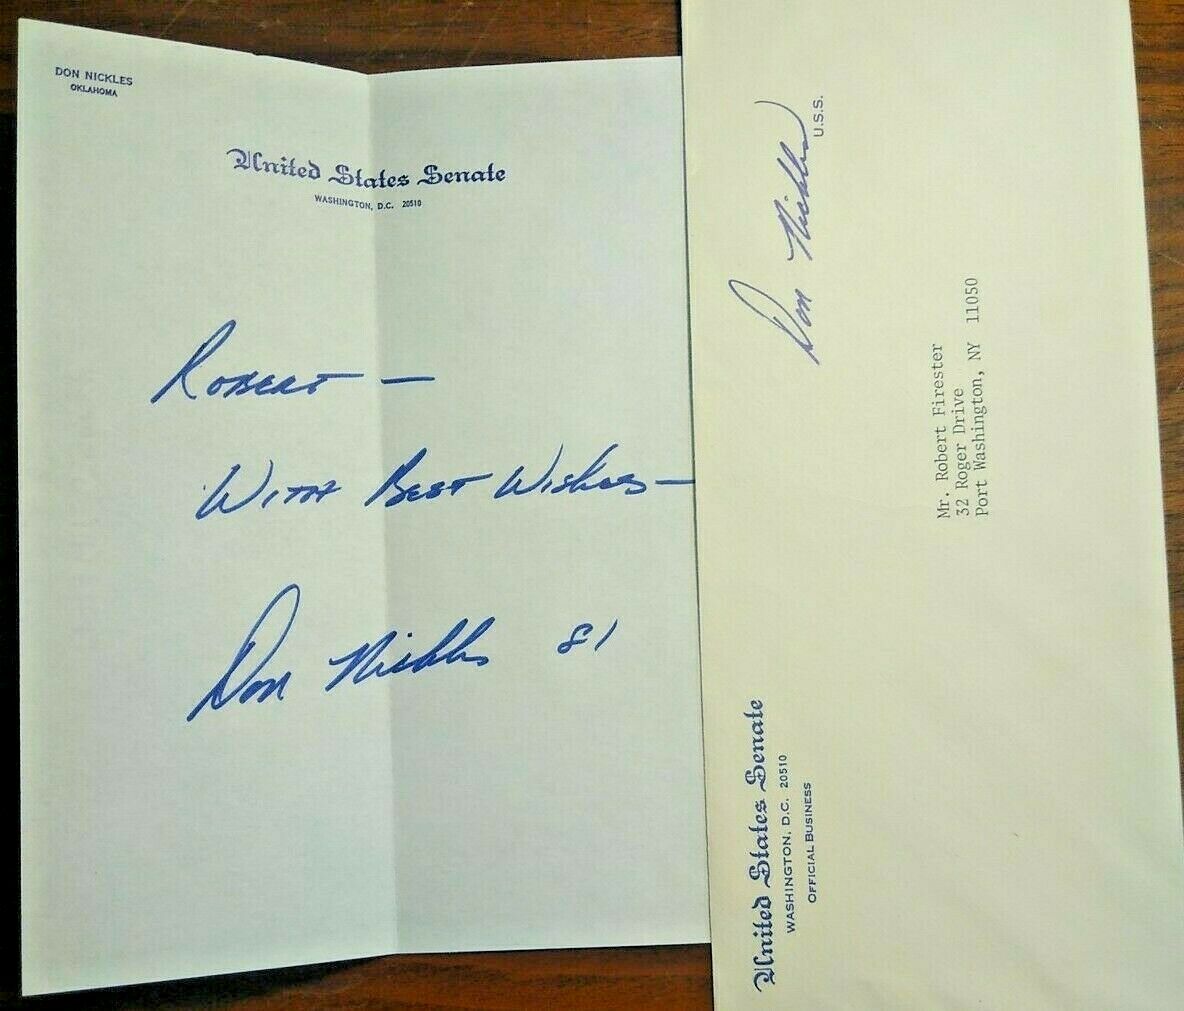 DON NICKLES
OKLAHOMA
United States Senate
WASHINGTON, D.C. 20510
ROBERT —
WITH BEST WISHES —
Don Nickles 81
Don Nickles
U.S.S.
Mr. Robert Firester
32 Roger Drive
Port Washington, NY 11050
United States Senate
WASHINGTON, D.C. 20510
OFFICIAL BUSINESS